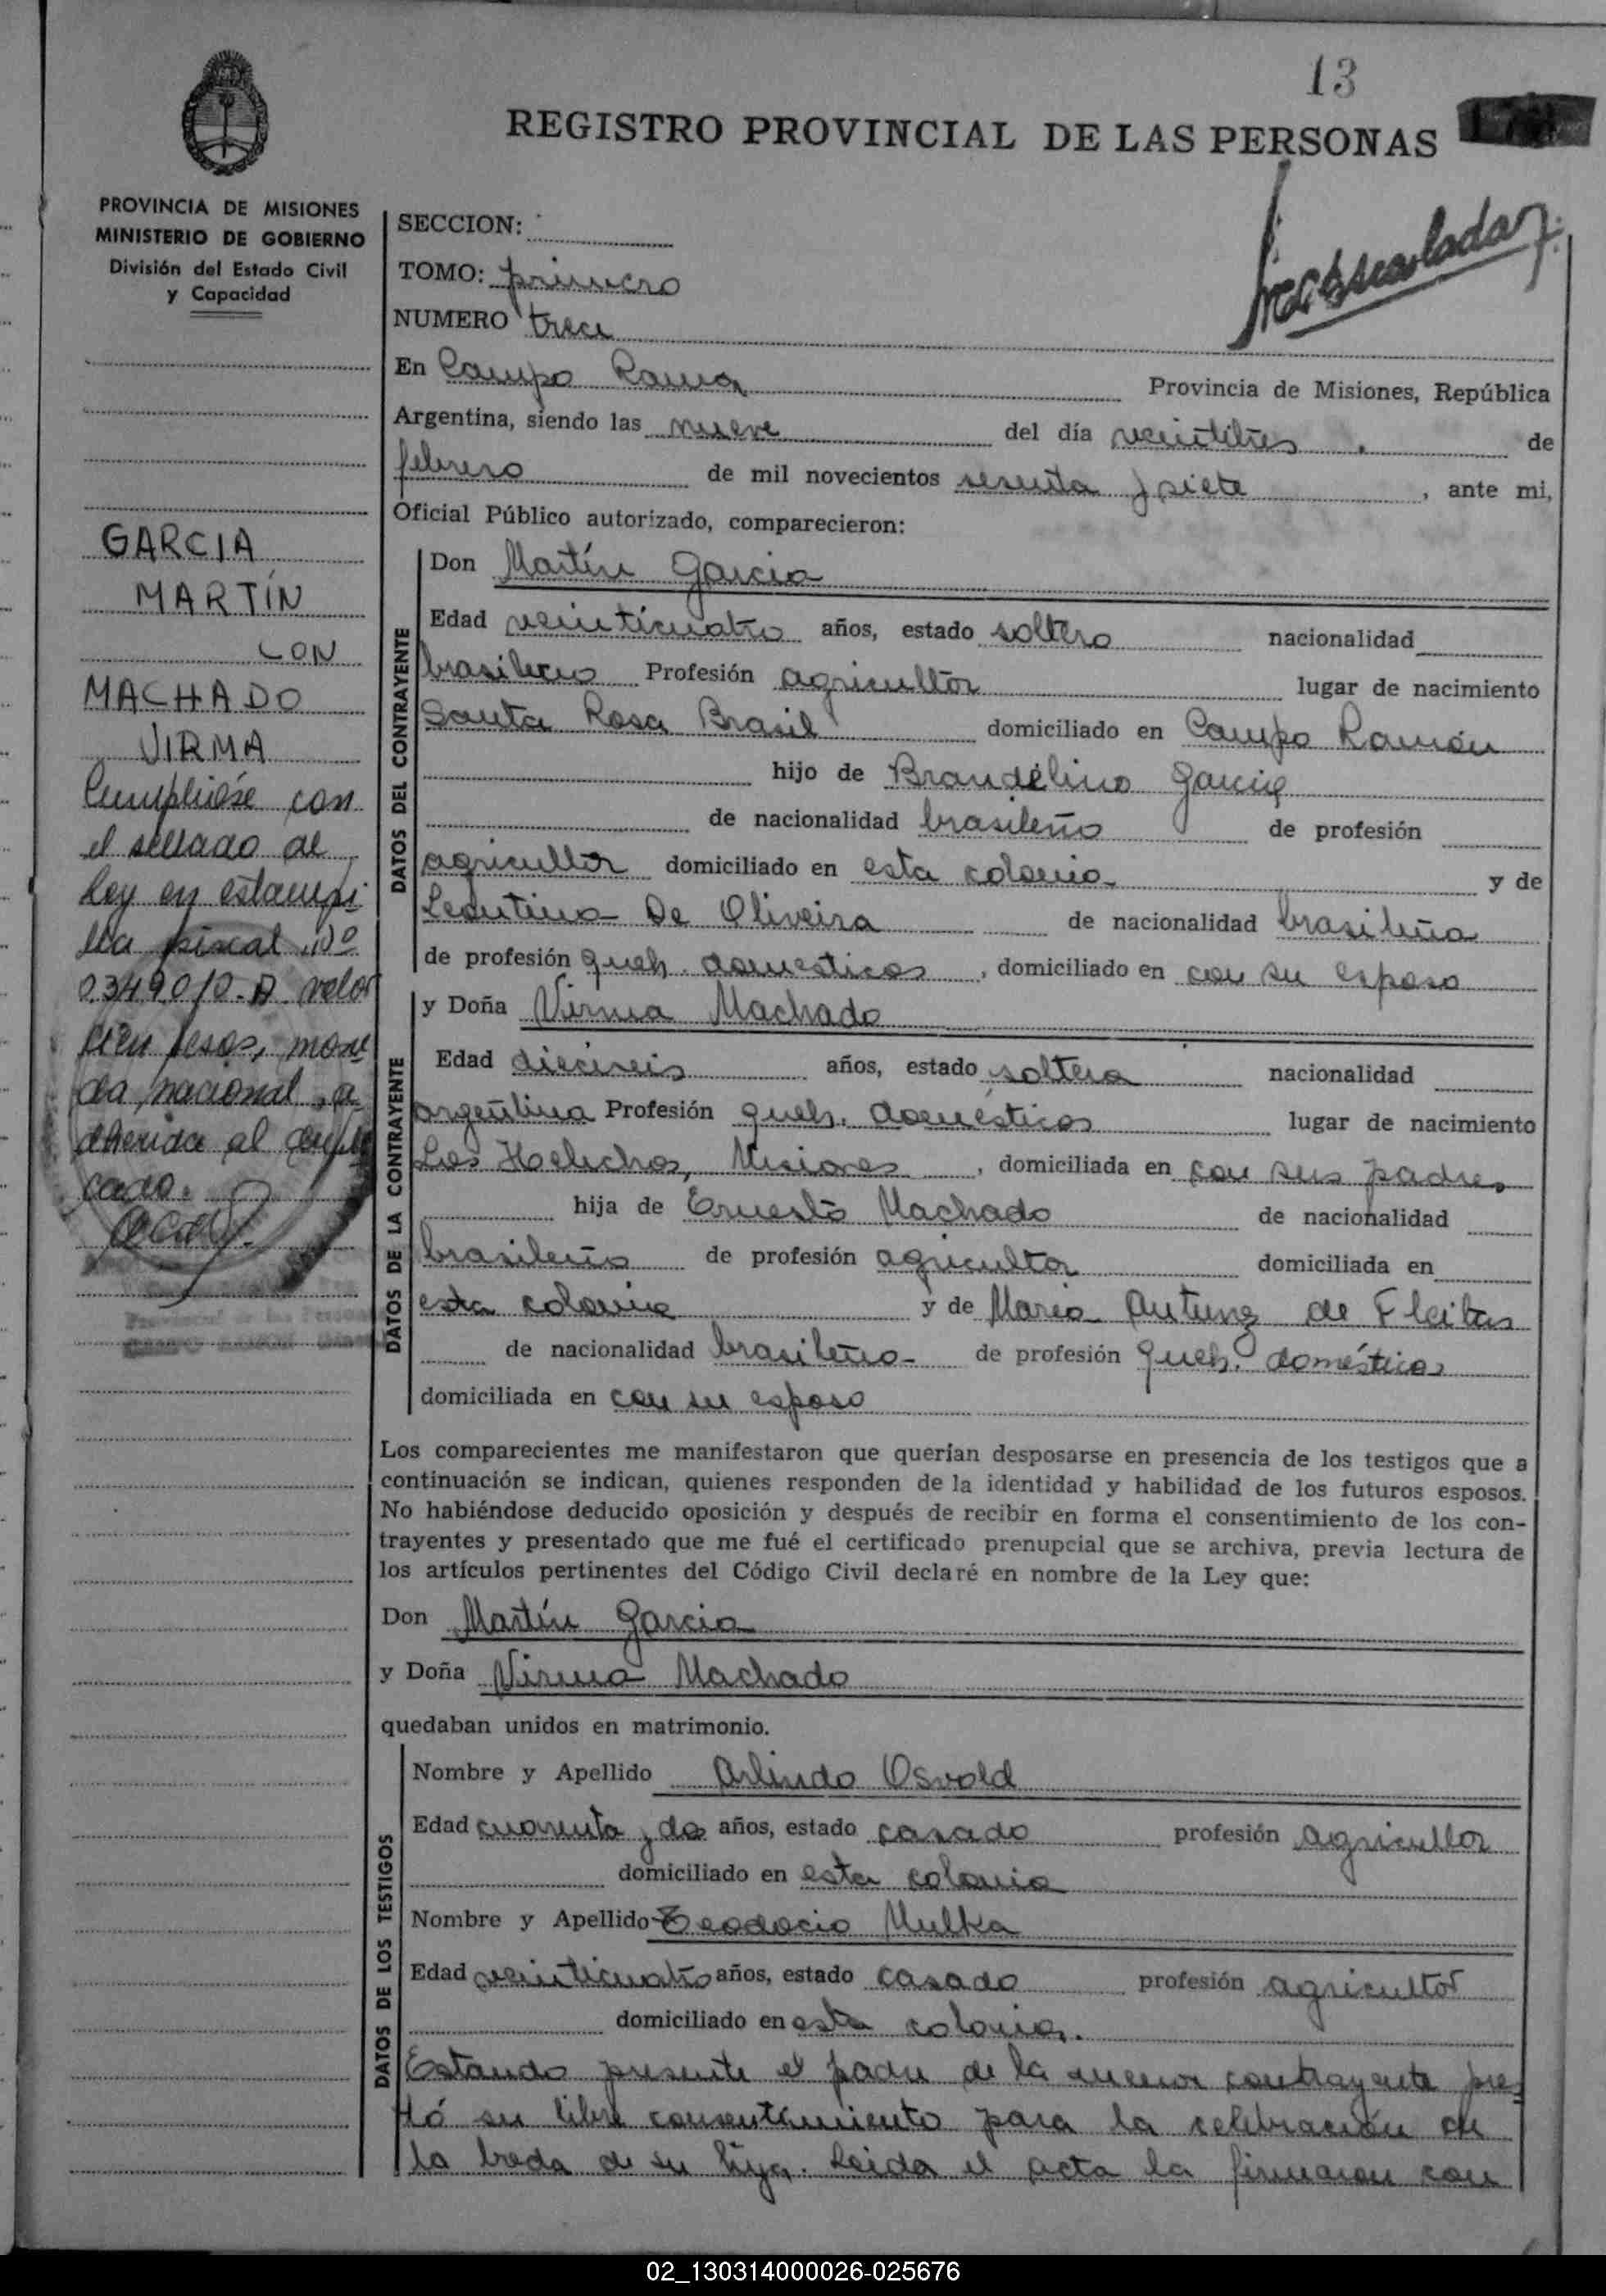 13
REGISTRO PROVINCIAL DE LAS PERSONAS
PROVINCIA DE MISIONES
MINISTERIO DE GOBIERNO
División del Estado Civil
y Capacidad
GARCIA
MARTÍN
CON
MACHADO
VIRMA
Cumplióse con
el sellado de
ley en estampi
lla fiscal Nº
valor
cien pesos, mone
da nacional, a
dherida al dupli
cado.
SECCION:
TOMO: primero
NUMERO trece
En Campo Ramon Provincia de Misiones, República
Argentina, siendo las nueve del día veintitres de
febrero de mil novecientos sesenta y siete, ante mi,
Oficial Público autorizado, comparecieron:
DATOS DEL CONTRAYENTE
Don Martín Garcia
Edad veinticuatro años, estado soltero nacionalidad
brasileño Profesión agricultor lugar de nacimiento
Santa Rosa Brasil domiciliado en Campo Ramón
hijo de Brandelino Garcia
de nacionalidad brasileño de profesión
agricultor domiciliado en esta colonia y de
De Oliveira de nacionalidad brasileña
de profesión queh. domesticos, domiciliado en con su esposo
DATOS DE LA CONTRAYENTE
y Doña Virma Machado
Edad dieciseis años, estado soltera nacionalidad
argentina Profesión queh. domésticos lugar de nacimiento
Los Helechos, Misiones, domiciliada en con sus padres
hija de Ernesto Machado de nacionalidad
brasileño de profesión agricultor domiciliada en
esta colonia y de Maria Antunez de Fleitas
de nacionalidad brasileña de profesión queh. domésticos
domiciliada en con su esposo
Los comparecientes me manifestaron que querían desposarse en presencia de los testigos que a
continuación se indican, quienes responden de la identidad y habilidad de los futuros esposos.
No habiéndose deducido oposición y después de recibir en forma el consentimiento de los con-
trayentes y presentado que me fué el certificado prenupcial que se archiva, previa lectura de
los artículos pertinentes del Código Civil declaré en nombre de la Ley que:
Don Martín Garcia
y Doña Virma Machado
quedaban unidos en matrimonio.
DATOS DE LOS TESTIGOS
Nombre y Apellido Arlindo Osvold
Edad cuarenta y dos años, estado casado profesión agricultor
domiciliado en esta colonia
Nombre y Apellido Teodocio Mulka
Edad veinticuatro años, estado casado profesión agricultor
domiciliado en esta colonia.
Estando presente el padre de la menor contrayente pres
tó su libre consentimiento para la celebración de
la boda de su hija. Leida el acta la firmaron con
02_130314000026-025676